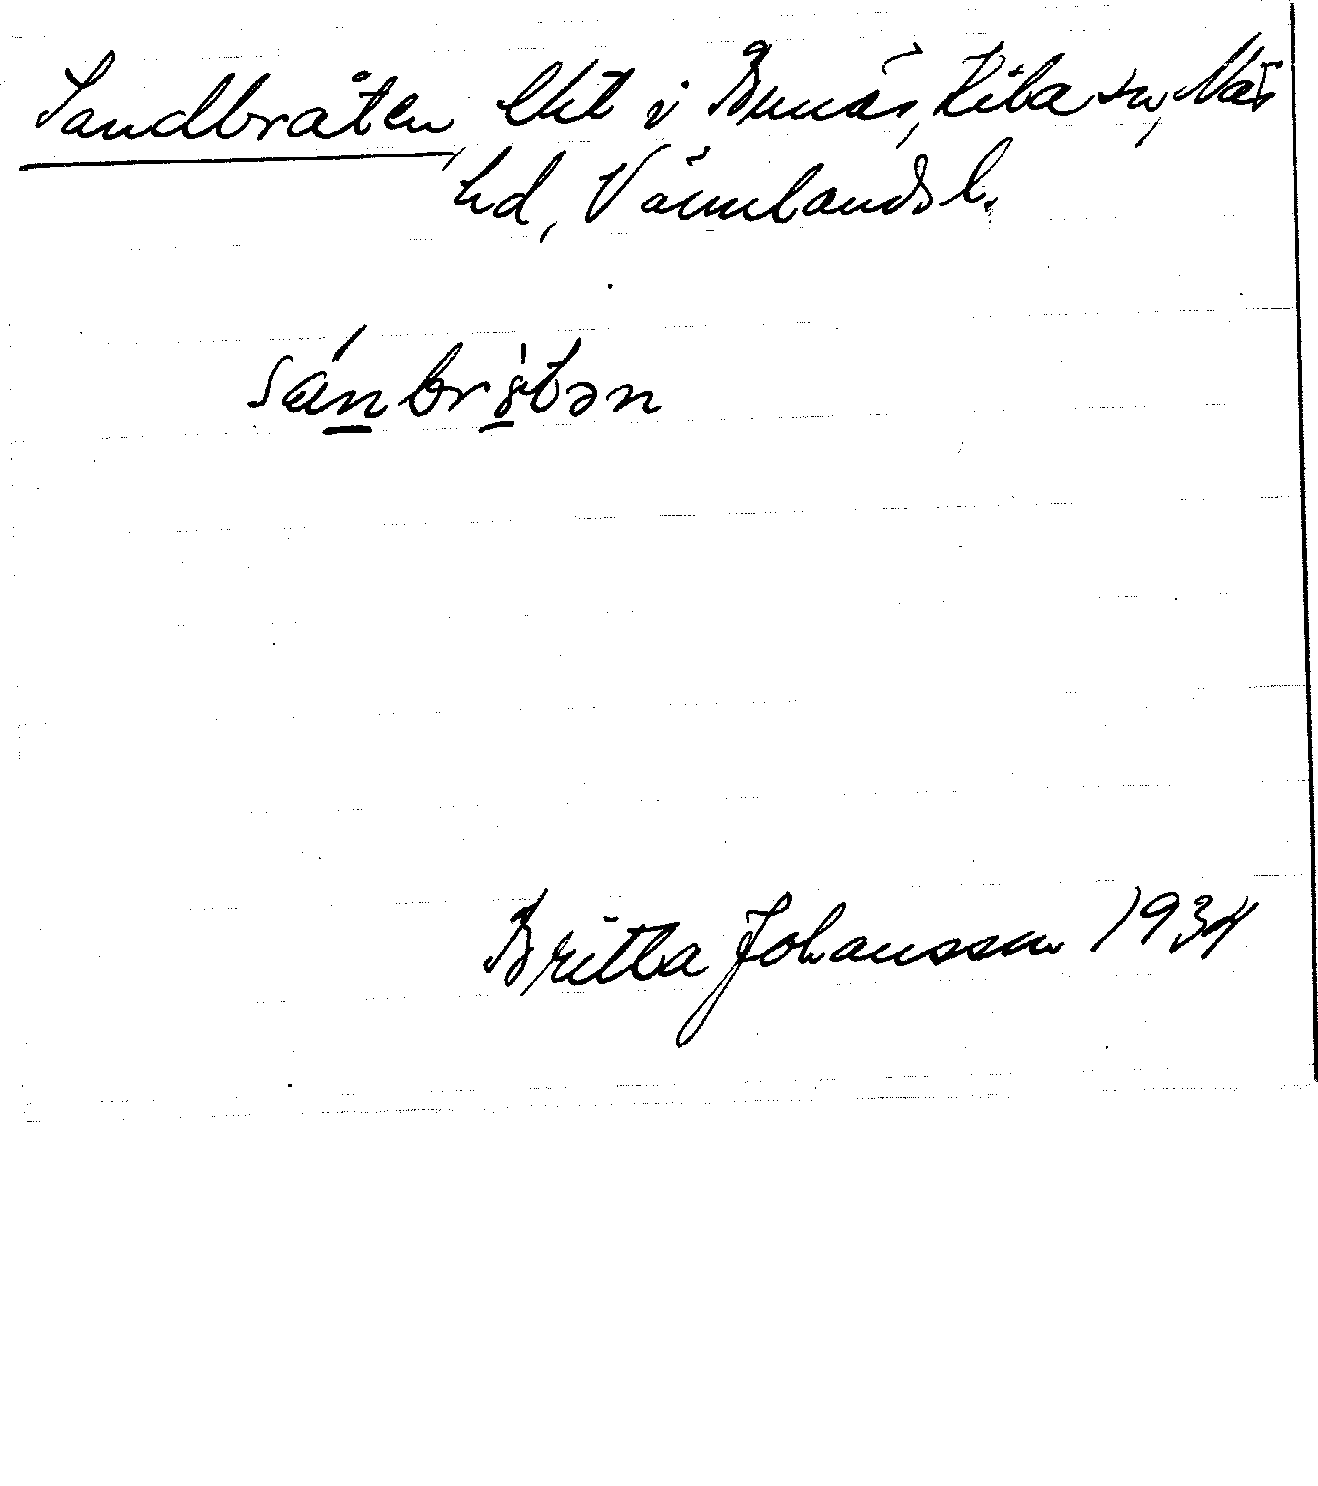 Sandbråten, lht i Bunäs, Kila sn, Näs
hd, Värmlands l.
Britta Johansson 1934